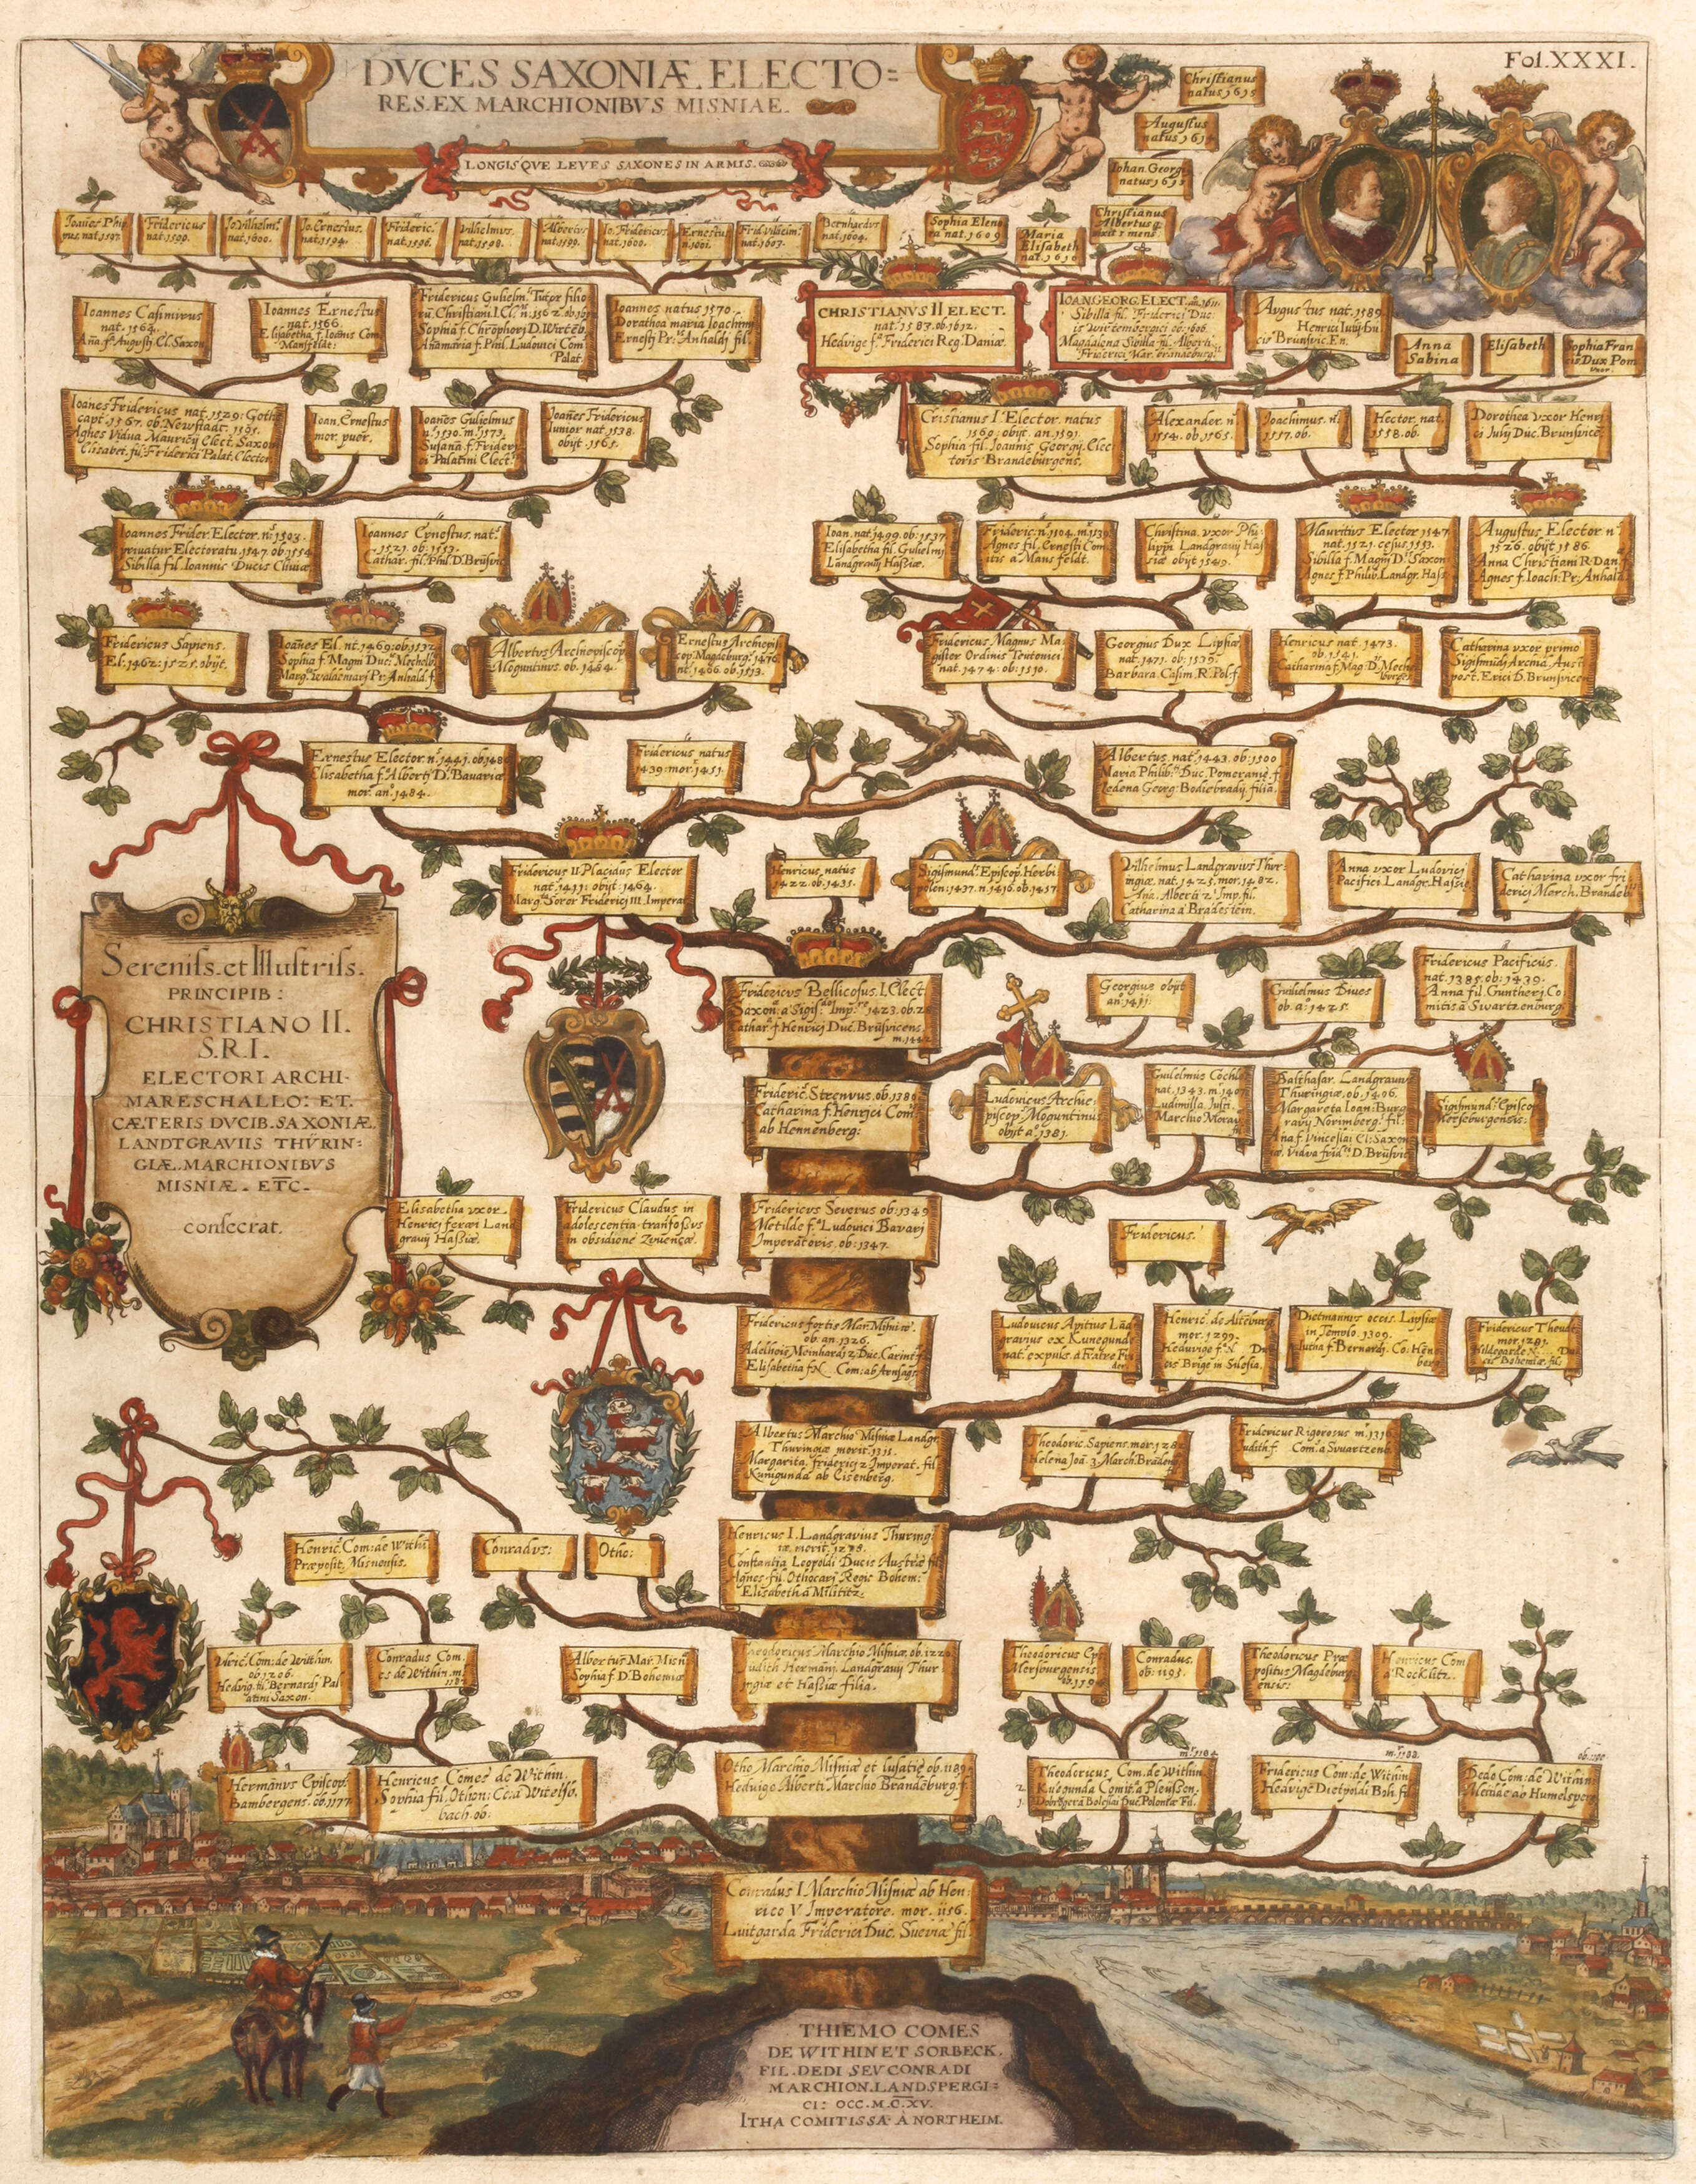 Fol.XXXI.
DVCES SAXONIÆ ELECTO=
RES.EX MARCHIONIBVS MISNIAE.
LONGISQVE LEVES SAXONES IN ARMIS.
Christianus
natus 1615
Augustus
natus 1614
Iohan.Georg
natus 161
Christianus
Albertus
Sophia Eleno
ra nat.1609
Maria
Elisabeth
nat.1610
Ioañes Phip
pus.nat.1597.
Fridericus
nat.1599.
Io.Vilhelm.
nat.1600.
Io.Ernestus.
nat.1594.
Frideric.
nat.1596.
Vilhelmus.
nat.1598.
Albertus
nat.1599.
Io.Fridericus
nat.1600.
Ernestus
n.1601.
Frid.Vilheim.
nat.1603.
Bernhardus
nat.1604.
Ioannes Casimirus
nat.1564.
Aña.f.Augusti.El.Saxon
Ioannes Ernestus
nat.1566.
Elisabetha.f.Ioañis Com
Mansfeldt:
Fridericus Gulielm. Tutor filio
Sophia f. Chrophori D.Wirteb.
Añamaria f.Phil.Ludovici Com
Palat.
Ioannes natus 1570
Dorathea maria Ioachim
Ernesti Pr: Anhaldi fil.
CHRISTIANVS II ELECT.
nat.1583.ob.1612.
Hedvige f. Friderici Reg. Daniæ.
IOAN.GEORG.ELECT.
Sibilla fil. Friderici Duc.
is Wirtembergici ob.1606.
Magdalena Sibilla fil. Alberti
Augustus nat.1589
Henrici Iulij Du
cis Brunsvic.En.
Anna
Sabina
Elisabeth
Sophia Fran
cis Dux Pom
vxor.
Ioañes Fridericus nat.1529: Gothe
capt.1567. ob. Newstadt: 1595.
Agnes Vidua Mauricij Elect. Saxon
Elisabet.fil: Friderici Palat. Elector.
Ioan.Ernestus
mor. puer.
Ioañes Gulielmus
n.1530.m.1573.
Susaña f. Frideri
ci Palatini Elect.
Ioañes Fridericus
iunior nat.1538.
obijt.1565.
Cristianus I Elector natus
1560:obijt.an.1591.
Sophia fil.Ioannis Georgij.Elec
toris Brandeburgens.
Alexander.ñ
1554.ob.1565.
Ioachimus.ñ
1557.ob.
Hector.nat.
1558.ob.
Dorothea vxor Henri
ci Iulij Duc.Brunsvice
Ioannes Frider.Elector.n.1503.
privatur Electoratu.1547.ob.1554
Sibilla fil Ioannis Ducis Cliviæ.
Ioannes Ernestus.nat.
1521.ob.1553.
Cathar.fil.Phil.D.Brūsvic
Ioan.nat.1499.ob.1537.
Elisabetha fil.Gulielmi
Landgravij Hassiæ.
Frideric.n.1504.m.1539
Agnes fil.Ernesti Com
itis a Mans feldt.
Christina.vxor Phi-
lippi Landgravij Has
siæ obijt 1549.
Mauritius Elector 1547
nat.1521.cesus.1553.
Sibilla f.Magni D.Saxon
Agnes f.Philip.Landgr.Hass
Augustus Elector n
1526.obijt 1586.
Anna Christiani R.Dan.f.
Agnes f.Ioach:Pr:Anhald
Fridericus Sapiens.
El:1462:1525.obijt.
Ioañes El.nt.1469:ob.1532
Sophia f.Magni Duc.Mechelb.
Marg.Waldemari Pr:Anhald.f.
Albertus Arciopiscop
Moguntinus.ob.1484.
Ernestus Archiepis
cop.Magdeburg.1476
nt.1466.ob.1513.
Fridericus Magnus Ma
gister Ordinis Teutonici
nat.1474.ob:1510.
Georgius Dux Lipsiæ
nat.1471.ob:1539.
Barbara.Casim.R.Pol:f.
Henricus nat 1473.
ob.1541.
Catharina f.Mag.D.Meche
lburge
Catharina vxor primo
Sigismūdi Archid.Aust
post.Erici D.Brunsvicen
Ernestus Elector.n.1441.ob.1486
Elisabetha f.Alberti D.Bavariæ
mor.an.1484.
Fridericus natus
1439.mor.1451.
Albertus.nat.1443.ob:1500
Maria Philib: Duc.Pomeranię.f.
Zedena Georg:Bodiebradij.filia.
Fridericus II Placidus Elector
nat.1411:obijt.1464.
Marg.Soror Friderici III.Imperat
Henricus natus
1422.ob.1435.
Sigismund.Episcop.Herbi
polen:1437.n.1416.ob.1457
Vilhelmus Landgravius Thur
ingiæ.nat.1425.mor.1482.
Ana.Alberti 2 Imp.fil.
Catharina a Bradestein.
Anna vxor Ludovici
Pacifici Landgr.Hassiæ
Catharina vxor fri
derici March.Brandeb
Sereniss.et Illustriss.
PRINCIPIB:
CHRISTIANO II.
S.R.I.
ELECTORI ARCHI-
MARESCHALLO: ET.
CÆTERIS DVCIB.SAXONIÆ.
LANDTGRAVIIS THVRIN:
GIÆ.MARCHIONIBVS
MISNIÆ. ETC.
consecrat.
Fridericus Bellicosus.I.Elect
Saxon:a Sigis: Imp: 1423.ob.2
Cathar.f Henrici Duc.Brūsvicens.
Georgius obijt
an:1411.
Gulielmus Dives
ob.a.1425.
Fridericus Pacificus.
nat.1385.ob:1439.
Anna fil.Guntheri.Co
mitis a Swartzenburg
Frideric.Strenvus.ob.1380
Catharina f.Henrici Com
ab Hennenberg:
Ludovicus Archie-
piscop.Moguntinus
obijt a.1381.
Guilelmus Cochle
nat.1343.m.1407
Ludimilla.Iusti.
Marchio Morav
Balthasar. Landgravi
Thuringiæ.ob.1406.
Margareta Ioan:Burg
ravij Norimberg:fil:
Aña.f.Vinceslai El:Saxon
iæ.Vidua frid.D.Brūsvic
Sigismund.Episcop
Mersebu​rgensis:
Elisabetha vxor
Henrici ferrei Land
gravij Hassiæ.
Fridericus Claudus in
adolescentia transfossus
in obsidione
Fridericus Severus ob:1349
Metilde f.Ludovici Bavari
Imperatoris.ob:1347.
Fridericus.
Fridericus fortis Mar.Misniæ.
ob.an.1326.
Adelheis Meinhardi 2 Duc.Carint.f.
Elisabetha f.N. Com:ab Arnsag
Ludovicus Apitius Lād
gravius ex Kunegunde
nat.expuls.a Fratre Fri
der
Henric.de Altēburg
mor.1299.
Heduvige f.N Du
cis Brige in Silesia.
Dietmannus occis.Lipsiæ
in Templo.1309.
Iutha f.Bernardi.Co.Hēne
berg.
Fridericus Theut
mor.1291.
Hildegarde N... Du
cis Bohemiæ.fil:
Albertus Marchio Misniæ Landgr.
Thuringiæ morit.1315.
Margarita.friderici 2 Imperat.fil
Kunigunda ab Eisenberg.
Theodoric.Sapiens.mor.128
Helena Joā.3 March.Brādenb
Fridericus Rigorosus m.1316
Iudith.f. Com.a Svvartzenb
Henricus I.Landgravius Thuring
iæ.morit.12 8.
Constantia Leopoldi Ducis Austriæ fil
Agnes fil Othocari Regis Bohem:
Elisabeth a Milititz.
Henric.Com:de Withi
Præposit.Misnensis.
Conradvs:
Otho:
Vlric.Com:de Within.
ob.1206.
Hedvig.fil.Bernardi Pal
atini Saxon.
Conradus Com.
es de Within.m.
Albertus Mar.Misn
Sophia f D.Bohemiæ
Theodoricus Marchio Misniæ.ob.122
Iudith Hermani.Landgravij Thur
ingiæ et Hassiæ filia.
Theodoricus Eps
Mersburgensis
Conradus.
ob:1195.
Theodoricus Præ
positus Magdeburg
ensis:
Henricus Com
a Rocklitz.
Hermānus Episcop
Bambergens.ob.1177
Henricus Comes de Within.
Sophia fil.Othon:Co:a Witelss.
bach.ob:
Otho Marchio Misniæ et lusatiæ ob.1189
Hedvige Alberti Marchio Brandēburg.f.
m.1184
Theodoricus, Com.de Within
2. Kunegunda Comit:a Pleussen.
1. Dobergera Boleslai Duc.Poloniæ Fil.
m.1182
Fridericus Com:de Within
Hedvige Dietpoldi Boh.fil
ob.1190
Dedo Com:de Within:
ab Humelsperg
Conradus I.Marchio Misniæ ab Hen:
rico V Imperatore. mor. 1156.
Luitgarda Friderici Duc. Sueviæ fil
THIEMO COMES
DE WITHIN ET SORBECK.
FIL.DEDI SEV CONRADI
MARCHION.LANDSPERGI:
CI: OCC.M.C.XV.
ITHA COMITISSA A NORTHEIM.